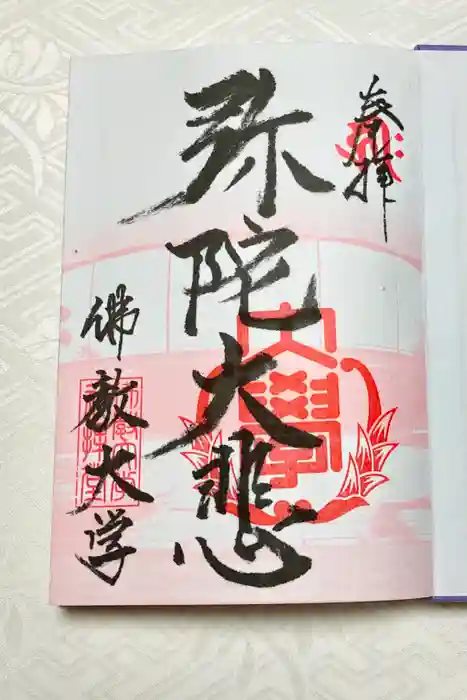 奉拝
弥陀大悲
大學
佛教大学